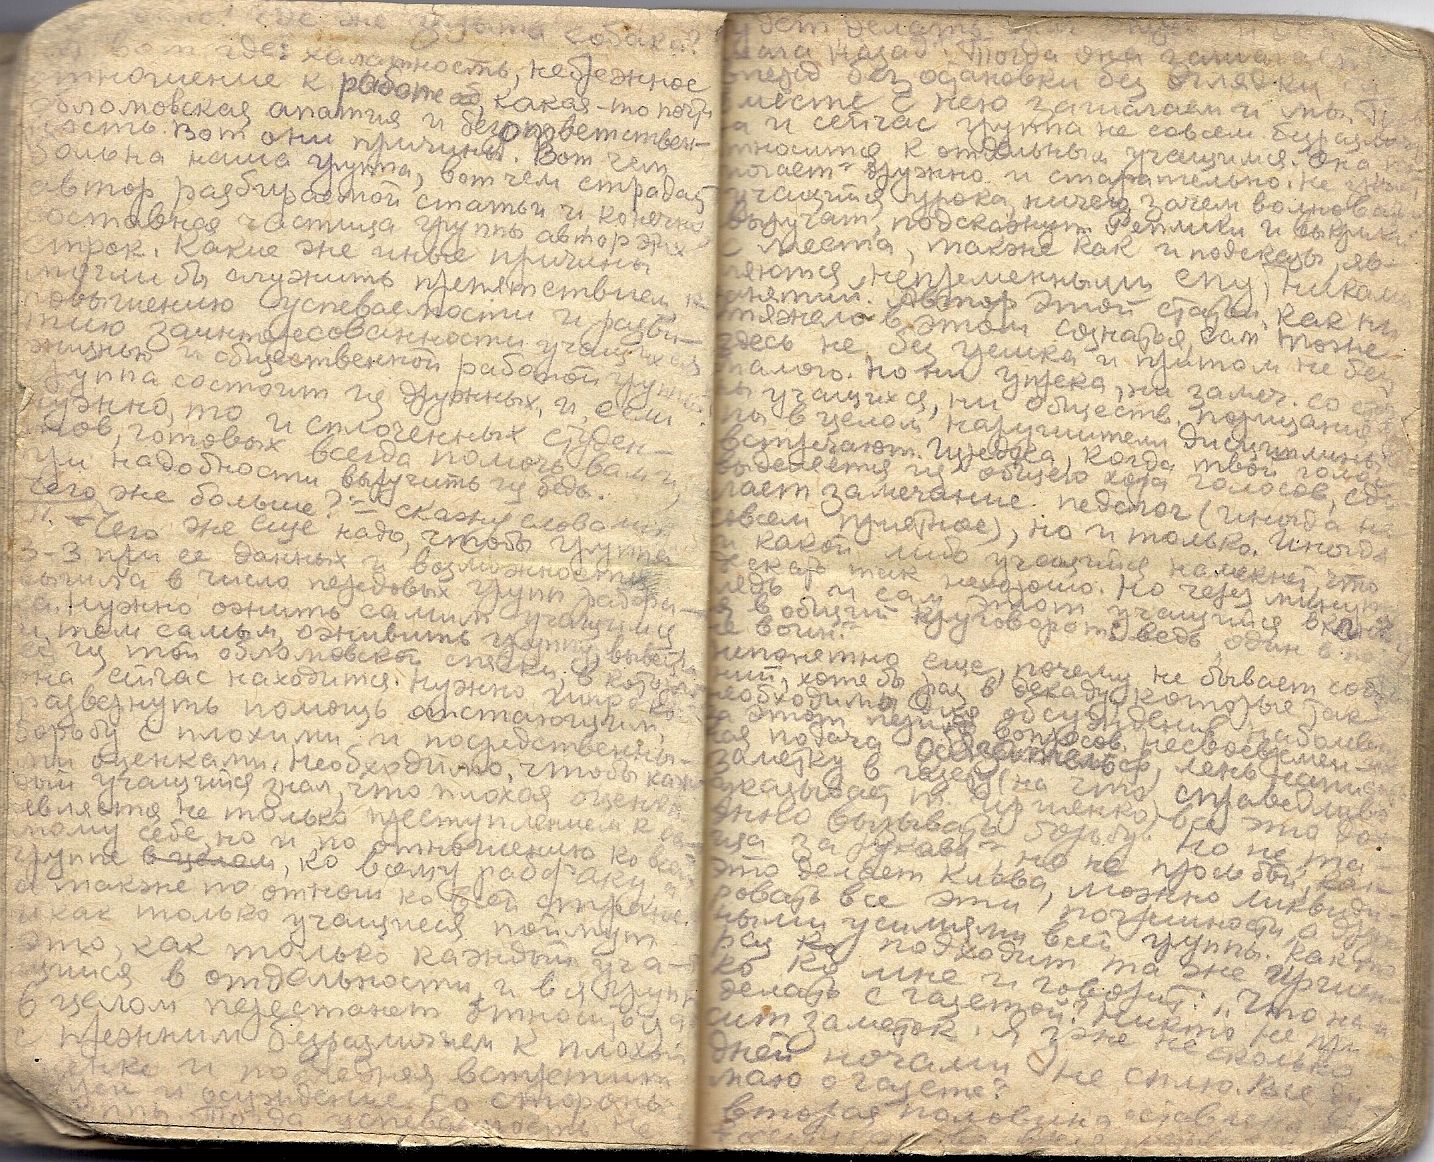 было! Где же зарыта собака?
А вот где: халатность, небрежное
отношение к работе, какая-то
обломовская апатия и безответствен-
ность. Вот они причины. Вот чем
больна наша группа, вот чем страдает
автор разбираемой статьи и конечно
составная частица группы автор этих
строк. Какие же иные причины
могли бы служить препятствием к
повышению успеваемости и разви-
тию заинтересованности учащихся
жизнью и общественной работой группы
группа состоит из дружных, и, если
нужно, то и сплоченных студен-
тов, готовых всегда помочь вам и,
при надобности выручить из беды.
чего же больше? – скажу словами
П. – Чего же еще надо, чтобы группа
3-3 при ее данных и возможностях
вышла в число передовых групп рабфа-
ка. Нужно оживить самим учащимся
и тем самым, оживить группу, вывести
ее из той обломовской спячки, в которой
она сейчас находится. Нужно широко
развернуть помощь отстающим,
борьбу с плохими и посредственны-
ми оценками. Необходимо, чтобы каж-
дый учащийся знал, что плохая оценка
является не только преступлением к са-
мому себе, но и по отношению ко всей
группе в целом, ко всему рабфаку, и
а также по отнош ко всей стране.
и как только учащиеся поймут
это, как только каждый уча-
щийся в отдельности, и вся группа
в целом перестанет относиться
с прежним безразличием к плохой
оценке и последняя встретит
и осуждение со стороны
группы. Тогда успеваемость не
будет делать
шага назад. Тогда она зашагает
вперед без остановки без оглядки
вместе с нею зашагаем и мы.
а и сейчас группа не совсем безразлично
относится к отдельным учащимся. Она
помогает дружно и старательно. Не знает
учащийся урока, ничего, зачем волноваться
выручат, подскажут. Реплики и выкрики
с места, также как и подсказы, яв-
ляются непременными спутниками
занятий. Автор этой статьи, как ни
тяжело в этом сознаться, сам тоже
здесь не без грешка и притом не без
малого. Но ни упрека, ни замеч. со сторо-
ны учащихся, ни обществ. порицания
пы в целом, нарушители дисциплины
встречают. Изредка, когда твой голос
выделяется из общего хора голосов, сде-
лает замечание педагог (иногда не
совсем приятное), но и только. Иногда
и какой либо учащийся намекнет, что
дескать так нехорошо. Но через минуту
глядь – и сам этот учащийся включи
ся в общий круговорот: ведь „один в по-
ле воин."
непонятно еще, почему не бывает собра-
ний, хотя бы раз в декаду, которые так
необходимы для обсуждения наболевших
за этот период вопросов. несвоевремен-
ная подача лень написать
заметку в газету (на что справедливо
указывает т. Ирщенко) все это дол-
жно вызывать борьбу. Но не та-
ща за рукав – но не просьбой, как
это делает Клава, можно ликвиди-
ровать все эти погрешности, а друж-
ными усилиями всей группы. Как то
раз подходит та же Ирщен-
ко ко мне и говорит: „Что нам
делать с газетой? Никто не пи-
шит заметок. Я уже несколько
дней ночами не сплю. Все ду-
маю о газете?
вторая половина